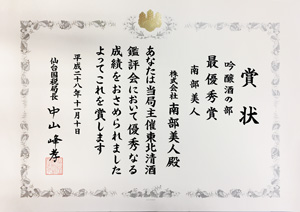 賞状
吟醸酒の部
最優秀賞
南部美人
株式会社 南部美人殿
あなたは当局主催東北清酒
鑑評会において優秀なる
成績をおさめられました
よってこれを賞します
平成二十八年十一月十日
仙台国税局長 中山峰孝